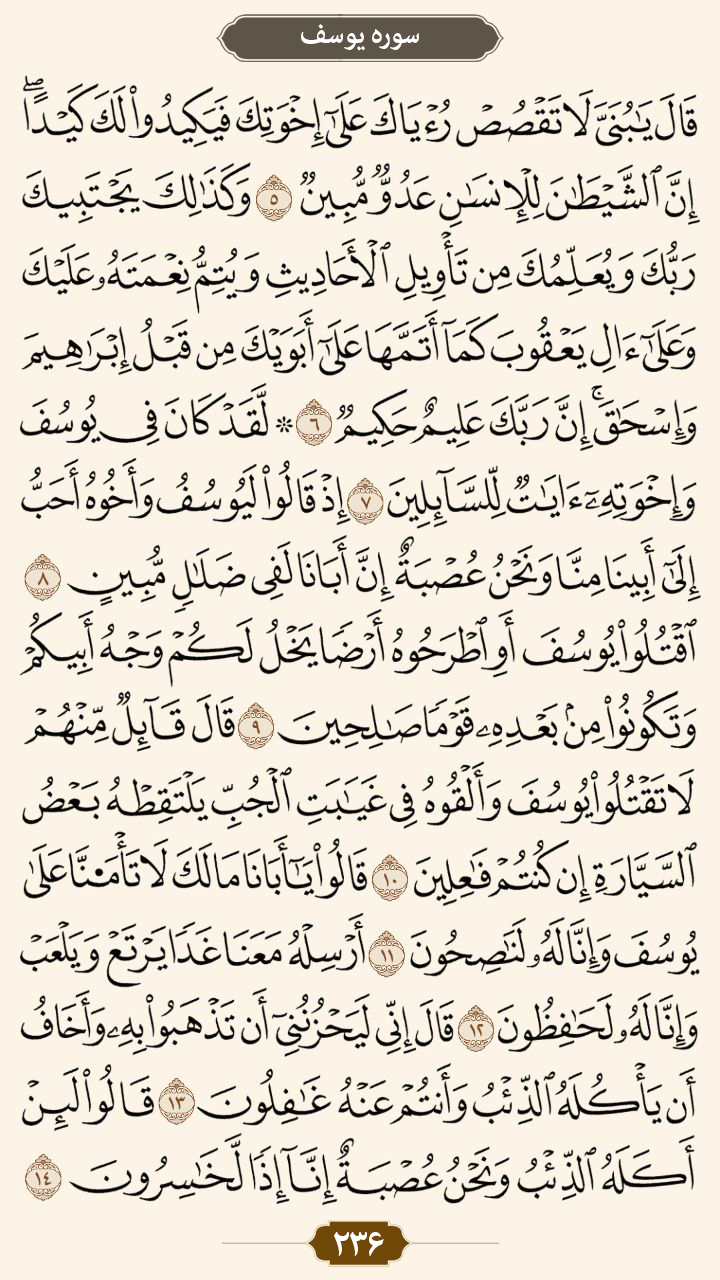 سوره یوسف
قَالَ يَٰبُنَيَّ لَا تَقۡصُصۡ رُءۡيَاكَ عَلَىٰٓ إِخۡوَتِكَ فَيَكِيدُواْ لَكَ كَيۡدًاۖ
إِنَّ ٱلشَّيۡطَٰنَ لِلۡإِنسَٰنِ عَدُوّٞ مُّبِينٞ ٥ وَكَذَٰلِكَ يَجۡتَبِيكَ
رَبُّكَ وَيُعَلِّمُكَ مِن تَأۡوِيلِ ٱلۡأَحَادِيثِ وَيُتِمُّ نِعۡمَتَهُۥ عَلَيۡكَ
وَعَلَىٰٓ ءَالِ يَعۡقُوبَ كَمَآ أَتَمَّهَا عَلَىٰٓ أَبَوَيۡكَ مِن قَبۡلُ إِبۡرَٰهِيمَ
وَإِسۡحَٰقَۚ إِنَّ رَبَّكَ عَلِيمٌ حَكِيمٞ ٦ ۞ لَّقَدۡ كَانَ فِي يُوسُفَ
وَإِخۡوَتِهِۦٓ ءَايَٰتٞ لِّلسَّآئِلِينَ ٧ إِذۡ قَالُواْ لَيُوسُفُ وَأَخُوهُ أَحَبُّ
إِلَىٰٓ أَبِينَا مِنَّا وَنَحۡنُ عُصۡبَةٌ إِنَّ أَبَانَا لَفِي ضَلَٰلٖ مُّبِينٍ ٨
ٱقۡتُلُواْ يُوسُفَ أَوِ ٱطۡرَحُوهُ أَرۡضٗا يَخۡلُ لَكُمۡ وَجۡهُ أَبِيكُمۡ
وَتَكُونُواْ مِنۢ بَعۡدِهِۦ قَوۡمٗا صَٰلِحِينَ ٩ قَالَ قَآئِلٞ مِّنۡهُمۡ
لَا تَقۡتُلُواْ يُوسُفَ وَأَلۡقُوهُ فِي غَيَٰبَتِ ٱلۡجُبِّ يَلۡتَقِطۡهُ بَعۡضُ
ٱلسَّيَّارَةِ إِن كُنتُمۡ فَٰعِلِينَ ١٠ قَالُواْ يَٰٓأَبَانَا مَا لَكَ لَا تَأۡمَ۬نَّا عَلَىٰ
يُوسُفَ وَإِنَّا لَهُۥ لَنَٰصِحُونَ ١١ أَرۡسِلۡهُ مَعَنَا غَدٗا يَرۡتَعۡ وَيَلۡعَبۡ
وَإِنَّا لَهُۥ لَحَٰفِظُونَ ١٢ قَالَ إِنِّي لَيَحۡزُنُنِيٓ أَن تَذۡهَبُواْ بِهِۦ وَأَخَافُ
أَن يَأۡكُلَهُ ٱلذِّئۡبُ وَأَنتُمۡ عَنۡهُ غَٰفِلُونَ ١٣ قَالُواْ لَئِنۡ
أَكَلَهُ ٱلذِّئۡبُ وَنَحۡنُ عُصۡبَةٌ إِنَّآ إِذٗا لَّخَٰسِرُونَ ١٤
۲۳۶